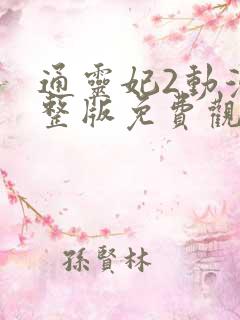 通靈妃2動漫
整版免費觀
孫賢林